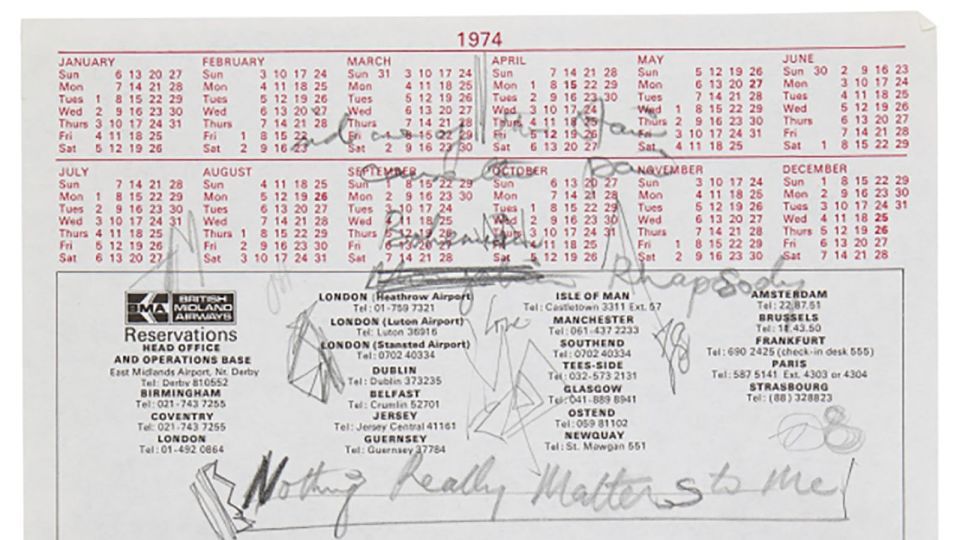 1974
JANUARY
Sun 6 13 20 27
Mon 7 14 21 28
Tues 1 8 15 22 29
Wed 2 9 16 23 30
Thurs 3 10 17 24 31
Fri 4 11 18 25
Sat 5 12 19 26
FEBRUARY
Sun 3 10 17 24
Mon 4 11 18 25
Tues 5 12 19 26
Wed 6 13 20 27
Thurs 7 14 21 28
Fri 1 8 15 22
Sat 2 9 16 23
MARCH
Sun 31 3 10 17 24
Mon 4 11 18 25
Tues 5 12 19 26
Wed 6 13 20 27
Thurs 7 14 21 28
Fri 1 8 15 22 29
Sat 2 9 16 23 30
APRIL
Sun 7 14 21 28
Mon 1 8 15 22 29
Tues 2 9 16 23 30
Wed 3 10 17 24
Thurs 4 11 18 25
Fri 5 12 19 26
Sat 6 13 20 27
MAY
Sun 5 12 19 26
Mon 6 13 20 27
Tues 7 14 21 28
Wed 1 8 15 22 29
Thurs 2 9 16 23 30
Fri 3 10 17 24 31
Sat 4 11 18 25
JUNE
Sun 30 2 9 16 23
Mon 3 10 17 24
Tues 4 11 18 25
Wed 5 12 19 26
Thurs 6 13 20 27
Fri 7 14 21 28
Sat 1 8 15 22 29
JULY
Sun 7 14 21 28
Mon 1 8 15 22 29
Tues 2 9 16 23 30
Wed 3 10 17 24 31
Thurs 4 11 18 25
Fri 5 12 19 26
Sat 6 13 20 27
AUGUST
Sun 4 11 18 25
Mon 5 12 19 26
Tues 6 13 20 27
Wed 7 14 21 28
Thurs 1 8 15 22 29
Fri 2 9 16 23 30
Sat 3 10 17 24 31
SEPTEMBER
Sun 1 8 15 22 29
Mon 2 9 16 23 30
Tues 3 10 17 24
Wed 4 11 18 25
Thurs 5 12 19 26
Fri 6 13 20 27
Sat 7 14 21 28
OCTOBER
Sun 6 13 20 27
Mon 7 14 21 28
Tues 1 8 15 22 29
Wed 2 9 16 23 30
Thurs 3 10 17 24 31
Fri 4 11 18 25
Sat 5 12 19 26
NOVEMBER
Sun 3 10 17 24
Mon 4 11 18 25
Tues 5 12 19 26
Wed 6 13 20 27
Thurs 7 14 21 28
Fri 1 8 15 22 29
Sat 2 9 16 23 30
DECEMBER
Sun 1 8 15 22 29
Mon 2 9 16 23 30
Tues 3 10 17 24 31
Wed 4 11 18 25
Thurs 5 12 19 26
Fri 6 13 20 27
Sat 7 14 21 28
Bohemian
Rhapsody
BMA BRITISH MIDLAND AIRWAYS
Reservations
HEAD OFFICE
AND OPERATIONS BASE
East Midlands Airport, Nr. Derby
Tel: Derby 810552
BIRMINGHAM
Tel: 021-743 7255
COVENTRY
Tel: 021-743 7255
LONDON
Tel: 01-492 0864
LONDON (Heathrow Airport)
Tel: 01-759 7321
LONDON (Luton Airport)
Tel: Luton 36916
LONDON (Stansted Airport)
Tel: 0702 40334
DUBLIN
Tel: Dublin 373235
BELFAST
Tel: Crumlin 52701
JERSEY
Tel: Jersey Central 41161
GUERNSEY
Tel: Guernsey 37784
ISLE OF MAN
Tel: Castletown 3311 Ext. 57
MANCHESTER
Tel: 061-437 2233
SOUTHEND
Tel: 0702 40334
TEES-SIDE
Tel: 032-573 2131
GLASGOW
Tel: 041-889 8941
OSTEND
Tel: 059 81102
NEWQUAY
Tel: St. Mawgan 551
AMSTERDAM
Tel: 22.87.51
BRUSSELS
Tel: 18.43.50
FRANKFURT
Tel: 690 2425 (check-in desk 555)
PARIS
Tel: 587 5141 Ext. 4303 or 4304
STRASBOURG
Tel: (88) 328823
Nothing Really Matters to me